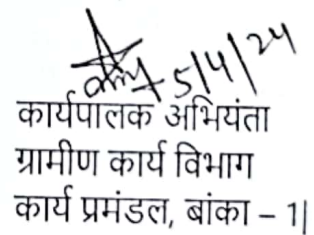 5/4/24
कार्यपालक अभियंता
ग्रामीण कार्य विभाग
कार्य प्रमंडल, बांका – 1|